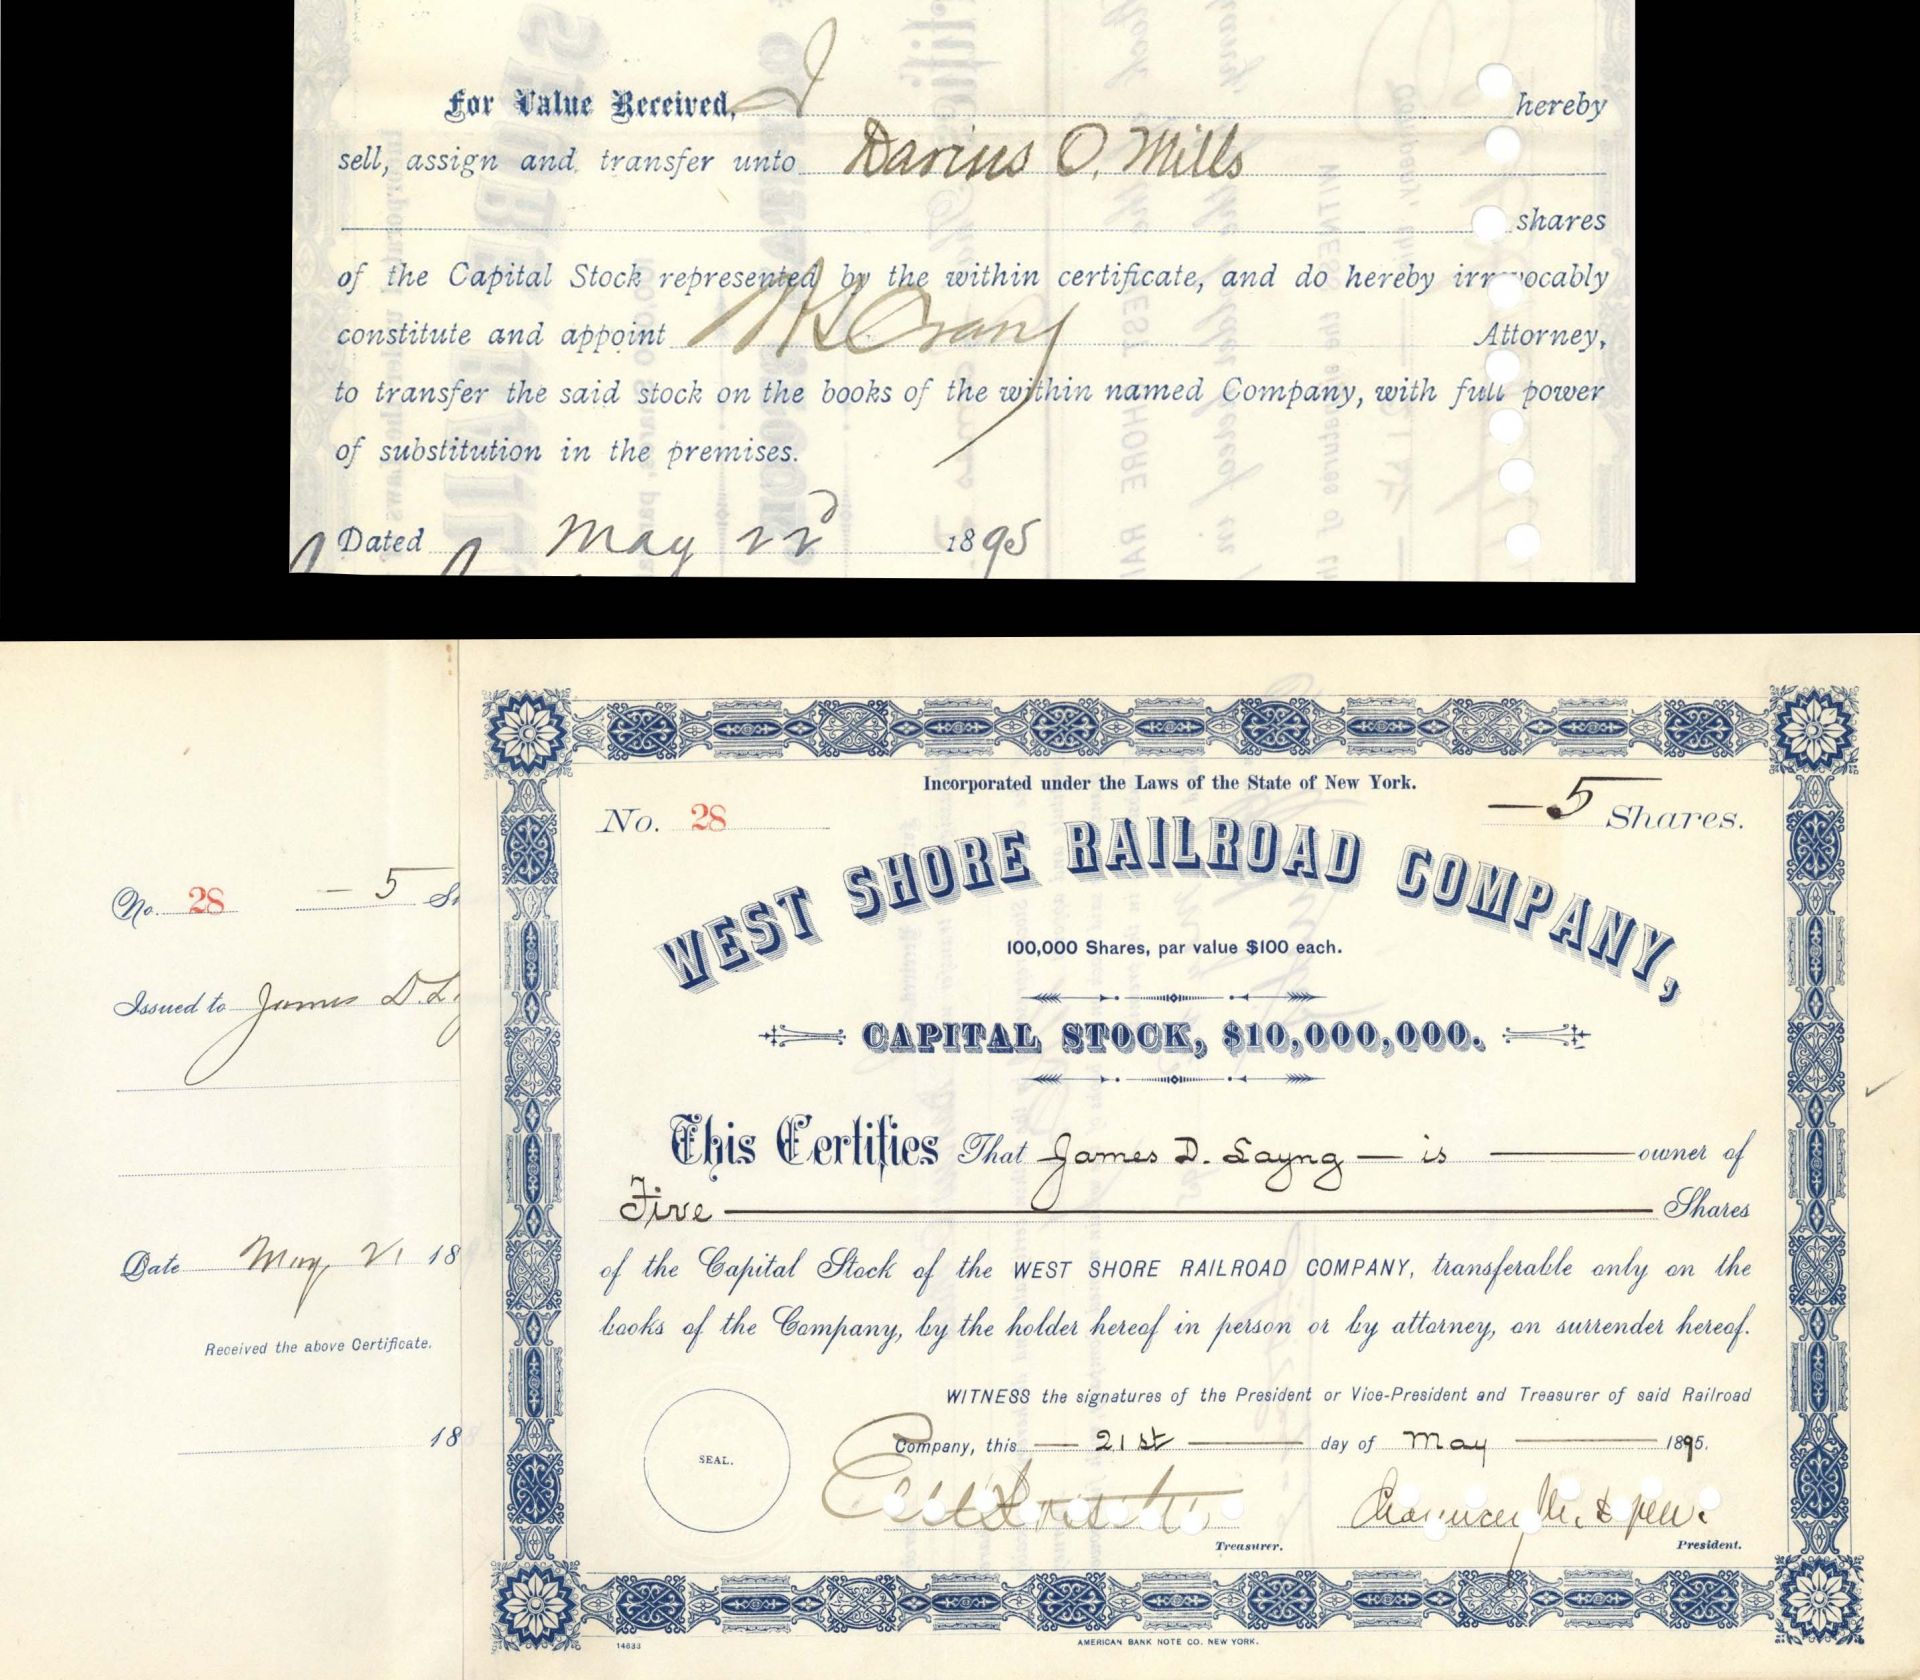 For Value Received, I hereby
sell, assign and transfer unto Darius O. Mills
shares
of the Capital Stock represented by the within certificate, and do hereby irrevocably
constitute and appoint Attorney,
to transfer the said stock on the books of the within named Company, with full power
of substitution in the premises.
Dated May 22d 1895
No. 28 - 5 S
Issued to James D. L
Date May 21 18
Received the above Certificate.
188
Incorporated under the Laws of the State of New York.
No. 28
— 5 Shares.
WEST SHORE RAILROAD COMPANY,
100,000 Shares, par value $100 each.
CAPITAL STOCK, $10,000,000.
This Certifies That James D. Layng — is — owner of
Five — Shares
of the Capital Stock of the WEST SHORE RAILROAD COMPANY, transferable only on the
books of the Company, by the holder hereof in person or by attorney, on surrender hereof.
WITNESS the signatures of the President or Vice-President and Treasurer of said Railroad
Company, this — 21st — day of May — 1895.
SEAL.
Chauncey M. Depew.
Treasurer.
President.
14633
AMERICAN BANK NOTE CO. NEW YORK.